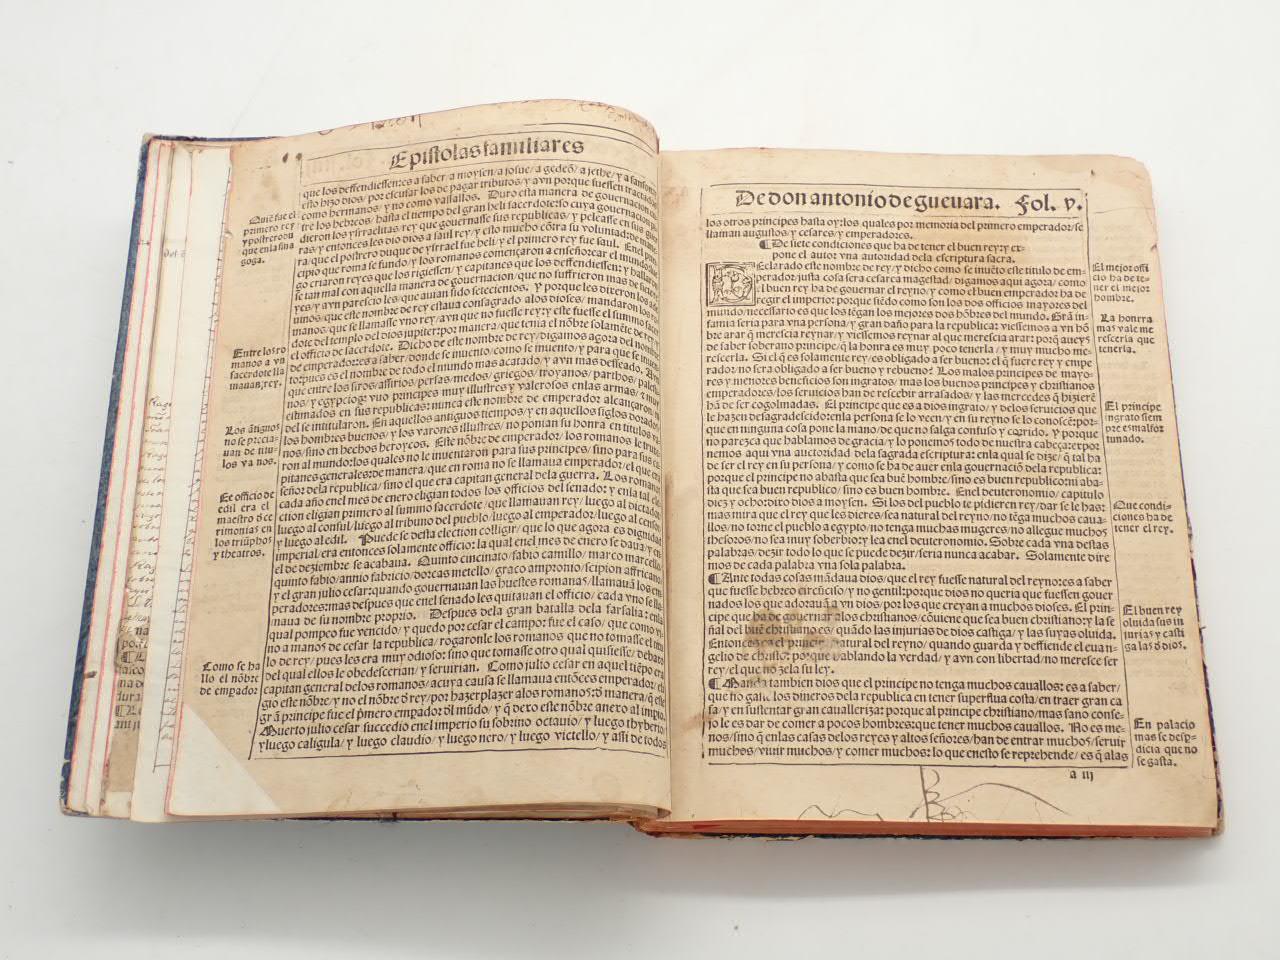 Epistolas familiares
que los deffendiessen: es a saber a moysen/ a josue/ a gedeõ/ a jethe/ y a sansom
esto hizo dios/ por escusar los de pagar tributos/ y avn porque fuessen tractados
como hermanos/ y no como vasallos. Duro esta manera de governacion
tre los hebreos/ hasta el tiempo del gran heli sacerdote: so cuya governacion
dieron los ysraelitas/ rey que governasse sus republicas/ y peleasse en sus
ras/ y entonces les dio dios a saul rey/ y esto mucho cõtra su voluntad: de
ra/ que el postrero duque de ysrael fue heli/ y el primero rey fue saul. Enel
cipio que roma se fundo/ y los romanos començaron a enseñorear el mundo
go criaron reyes que los rigiessen/ y capitanes que los deffendiessen: y hallarõ
se tan mal con aquella manera de governacion/ que no suffrieron mas de siete
reyes/ y avn parescio les que auian sido setecientos. Y porque les dixeron los
uinos/ que este nombre de rey estaua consagrado alos dioses/ mandaron los ro
manos/ que se llamasse vno rey/ avn que no fuesse rey: y este fuesse el summo sacer
dote del templo del dios jupiter: por manera/ que tenia el nõbre solamẽte de rey/ y
el officio de sacerdote. Dicho de este nombre de rey/ digamos agora del nombre
de emperador: es a saber/ donde se inuento/ como se inuento/ y para que se inuen
to: pues es el nombre de todo el mundo mas acatado/ y avn mas desseado. Avn
que entre los siros/ assirios/ persas/ medos/ griegos/ troyanos/ parthos/ pales
nos/ y egypcios: vuo principes muy illustres/ y valerosos enlas armas/ y
estimados en sus republicas: nunca este nombre de emperador alcançaron/ ni
del se intitularon. En aquellos antiguos tiempos/ y en aquellos siglos dorados
los hombres buenos/ y los varones illustres/ no ponian su honra en titulos va
nos/ sino en hechos heroycos. Este nõbre de emperador/ los romanos le truxe
ron al mundo: los quales no le inuentaron para sus principes/ sino para sus ca
pitanes generales: de manera/ que en roma no se llamaua emperador/ el que era
señor dela republica/ sino el que era capitan general dela guerra. Los romanos
cada año enel mes de enero eligian todos los officios del senado: y enla tal ele
ction eligian primero al summo sacerdote/ que llamauan rey/ luego al dictador/
luego al consul/ luego al tribuno del pueblo/ luego al emperador/ luego al censor
y luego al edil. Puede se desta election colligir/ que lo que agora es dignidad
imperial/ era entonces solamente officio: la qual enel mes de enero se daua/ y en
el de deziembre se acabaua. Quinto cincinato/ fabio camillo/ marco marcello/
quinto fabio/ annio fabricio/ dorcas metello/ graco ampronio/ scipion affricano/
y el gran julio cesar: quando governauan las huestes romanas/ llamauã los em
peradores: mas despues que enel senado les quitauan el officio/ cada vno se lla
maua de su nombre proprio. Despues dela gran batalla dela farsalia: enla
qual pompeo fue vencido/ y quedo por cesar el campo: fue el caso/ que como vi
no a manos de cesar la republica/ rogaronle los romanos que no tomasse el titu
lo de rey/ pues les era muy odioso: sino que tomasse otro qual quisiesse/ debaxo
del qual ellos le obedescerian/ y seruirian. Como julio cesar en aquel tiẽpo era
capitan general delos romanos/ acuya causa se llamaua entõces emperador/ eli
gio este nõbre/ y no el nõbre d̃ rey/ por hazer plazer alos romanos: d̃ manera/ q̃ este
grã principe fue el p̃mero emp̃ador d̃l mũdo/ y q̃ dexo este nõbre anexo al impio.
Muerto julio cesar succedio enel imperio su sobrino octauio/ y luego thyberio/
y luego caligula/ y luego claudio/ y luego nero/ y luego victello/ y assi de todos
Quiẽ fue el
primero rey
y postrero du
que en la sina
goga.
Entre los ro
manos a vn
sacerdote lla
mauan, rey.
Los ãtiguos
no se precia-
uan de titu-
los va nos.
Ee officio de
edil era el
maestro d̃ ce
rimonias en
los triũphos
y theatros.
Como se ha
llo el nõbre
de emp̃ador
De don antonio de gueuara. Fol. v.
los otros principes hasta oy: los quales por memoria del primero emperador/ se
llaman augustos/ y cesares/ y emperadores.
¶ De siete condiciones que ha de tener el buen rey: y ex-
pone el autor vna autoridad dela escriptura sacra.
DEclarado este nombre de rey/ y dicho como se inuẽto este titulo de em-
perador/ justa cosa sera cesarea magestad/ digamos aqui agora/ como
el buen rey ha de gouernar el reyno/ y como el buen emperador ha de
regir el imperio: porque siẽdo como son los dos officios mayores del
mundo/ necessario es que los tẽgan los mejores dos hõbres del mundo. Grã in-
famia seria para vna persona/ y gran daño para la republica: viessemos a vn hõ
bre arar q̃ merescia reynar/ y viessemos reynar al que merescia arar: porq̃ aueys
de saber soberano principe/ q̃ la honra es muy poco tenerla/ y muy mucho me-
rescerla. Si el q̃ es solamente rey/ es obligado a ser bueno: el q̃ fuere rey y empe
rador/ no sera obligado a ser bueno y rebueno? Los malos principes de mayo-
res y menores beneficios son ingratos/ mas los buenos principes y christianos
emperadores/ los seruicios han de rescebir arrasados/ y las mercedes q̃ hizierẽ
hã de ser cogolmadas. El principe que es a dios ingrato/ y delos seruicios que
le hazen desagradescido: enla persona se lo veen/ y en su reyno se lo conoscẽ: por-
que en ninguna cosa pone la mano/ de que no salga confuso y corrido. Y porque
no parezca que hablamos de gracia/ y lo ponemos todo de nuestra cabeça: expor
nemos aqui vna auctoridad dela sagrada escriptura: enla qual se dize/ q̃ tal ha
de ser el rey en su persona/ y como se ha de auer enla gouernaciõ dela republica:
porque el principe no abasta que sea buẽ hõbre/ sino es buen republico: ni aba-
sta que sea buen republico/ sino es buen hombre. Enel deuteronomio/ capitulo
diez y ocho: dixo dios a moysen. Si los del pueblo te pidieren rey/ dar se le has:
mas mira que el rey que les dieres/ sea natural del reyno/ no tẽga muchos caua-
llos/ no torne el pueblo a egypto/ no tenga muchas mugeres no allegue muchos
thesoros/ no sea muy soberbio: y lea enel deuteronomio. Sobre cada vna destas
palabras/ dezir todo lo que se puede dezir/ seria nunca acabar. Solamente dire
mos de cada palabra vna sola palabra.
¶ Ante todas cosas mãdaua dios/ que el rey fuesse natural del reyno: es a saber
que fuesse hebreo circũciso/ y no gentil: porque dios no queria que fuessen gouer
nados los que adorauã a vn dios/ por los que creyan a muchos dioses. El prin-
cipe que ha de gouernar alos christianos/ cõuiene que sea buen christiano: y la se
ñal del buẽ christiano es/ quãdo las injurias de dios castiga/ y las suyas oluida.
Entonces es el principe natural del reyno/ quando guarda y deffiende el euan-
gelio de christo: porque hablando la verdad/ y avn con libertad/ no meresce ser
rey/ el que no zela su ley.
¶ Manda tambien dios que el principe no tenga muchos cauallos: es a saber/
que no gaste los dineros dela republica en tener superflua costa/ en traer gran ca
sa/ y en sustentar gran caualleriza: porque al principe christiano/ mas sano conse-
jo le es dar de comer a pocos hombres: que tener muchos cauallos. No es me-
nos/ sino q̃ enlas casas delos reyes y altos señores/ han de entrar muchos/ seruir
muchos/ viuir muchos/ y comer muchos: lo que enesto se reprehende/ es q̃ alas
a iij
El mejor offi
cio ha de te-
ner el mejor
hombre.
La honera
mas vale me
rescerla que
tenerla.
El principe
ingrato siem
pre es malfor
tunado.
Que condi-
ciones ha de
tener el rey.
El buen rey
oluida sus in
jurias y casti
ga las d̃ dios.
En palacio
mas se desp-
dicia que no
se gasta.